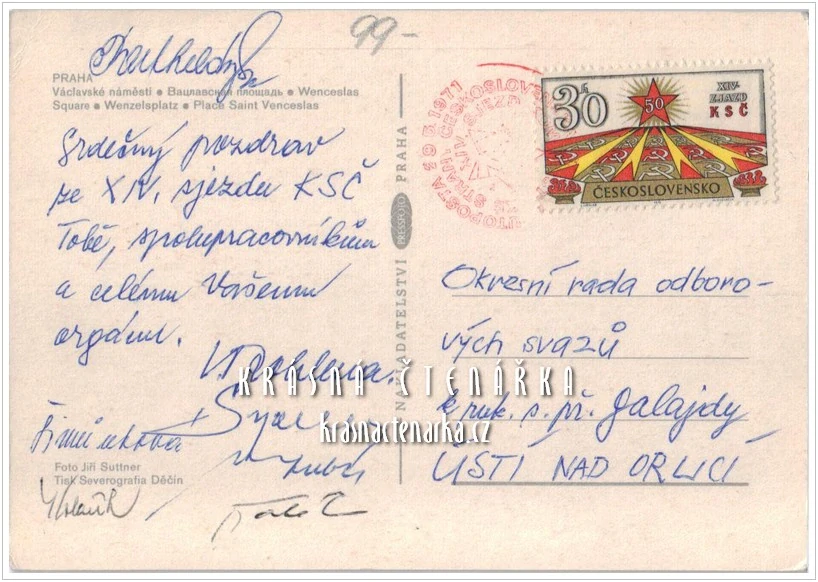 99-
PRAHA
Václavské náměstí • Вацлавская площадь • Wenceslas
Square • Wenzelsplatz • Place Saint Venceslas
Srdečný pozdrav
ze XIV. sjezdu KSČ
Tobě, spolupracovníkům
a celému Vašemu
orgánu.
Foto Jiří Suttner
Tisk Severografia Děčín
NAKLADATELSTVÍ PRESSFOTO PRAHA
AUTOPOŠTA 29.5.1971
XIV. SJEZD
30h
50
XIV.
ZJAZD
KSČ
ČESKOSLOVENSKO
Okresní rada odboro-
vých svazů
k ruk. s. př. Galajdy
ÚSTÍ NAD ORLICÍ
KRASNÁ ČTENÁŘKA
krasnactenarka.cz